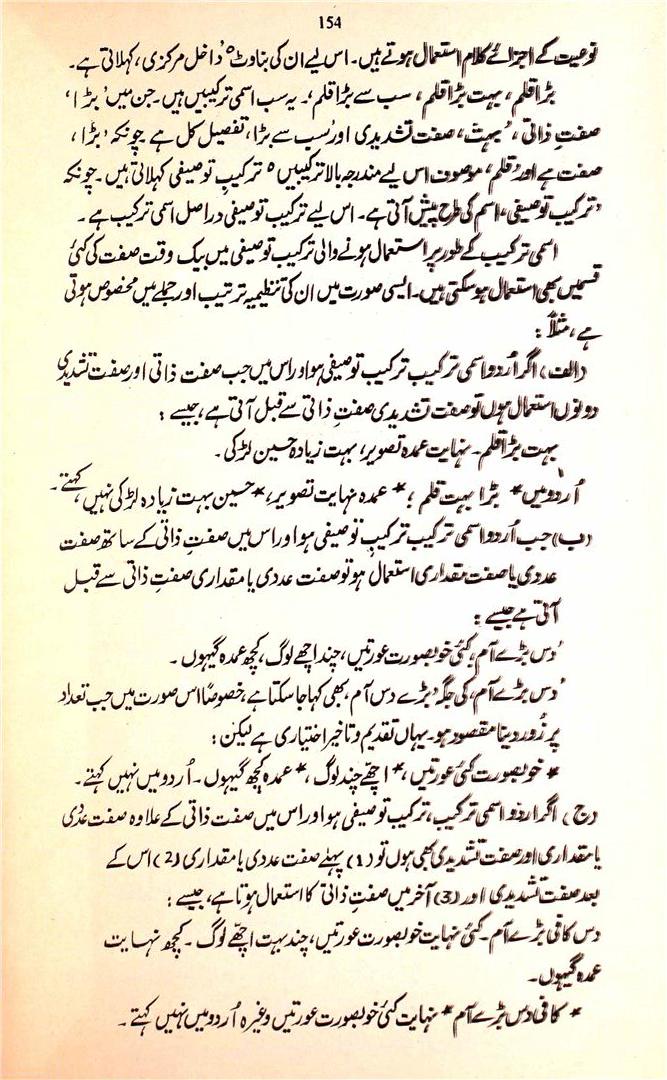 154
نوعیت کے اجزائے کلام استعمال ہوتے ہیں۔ اس لیے ان کی بناوٹ 'داخل مرکزی، کہلاتی ہے۔
بڑا قلم، بہت بڑا قلم، سب سے بڑا قلم، یہ سب اسمی ترکیبیں ہیں۔ جن میں 'بڑا،
صفتِ ذاتی، 'بہت، صفت تشدیدی اور 'سب سے بڑا، تفصیل کل ہے۔ چونکہ 'بڑا،
صفت ہے اور 'قلم، موصوف اس لیے مندرجہ بالا ترکیبیں 'ترکیبِ توصیفی کہلاتی ہیں۔ چونکہ
'ترکیب توصیفی، اسم کی طرح پیش آتی ہے۔ اس لیے ترکیب توصیفی دراصل اسمی ترکیب ہے۔
اسمی ترکیب کے طور پر استعمال ہونے والی ترکیب توصیفی میں بیک وقت صفت کی کئی
قسمیں بھی استعمال ہو سکتی ہیں۔ ایسی صورت میں ان کی تنظیمیہ ترتیب اور جملے میں مخصوص ہوتی
ہے، مثلاً :
(الف) اگر اُردو اسمی ترکیب ترکیب توصیفی ہو اور اس میں جب صفت ذاتی اور صفت تشدیدی
دونوں استعمال ہوں تو صفت تشدیدی صفتِ ذاتی سے قبل آتی ہے، جیسے :
بہت بڑا قلم۔ نہایت عمدہ تصویر، بہت زیادہ حسین لڑکی۔
اُردو میں * بڑا بہت قلم ؛ * عمدہ نہایت تصویر، * حسین بہت زیادہ لڑکی نہیں، کہتے۔
(ب) جب اُردو اسمی ترکیب ترکیبِ توصیفی ہو اور اس میں صفتِ ذاتی کے ساتھ صفت
عددی یا صفت مقداری استعمال ہو تو صفت عددی یا مقداری صفتِ ذاتی سے قبل
آتی ہے جیسے :
'دس بڑے آم، کئی خوبصورت عورتیں، چند اچھے لوگ، کچھ عمدہ گیہوں۔
'دس بڑے آم، کی جگہ 'بڑے دس آم، بھی کہا جا سکتا ہے، خصوصًا اس صورت میں جب تعداد
پر زُور دینا مقصود ہو۔ یہاں تقدیم و تاخیر اختیاری ہے لیکن :
* خوبصورت کئی عورتیں، * اچھے چند لوگ، * عمدہ کچھ گیہوں۔ اُردو میں نہیں کہتے۔
(ج) اگر اردو اسمی ترکیب، ترکیب توصیفی ہو اور اس میں صفت ذاتی کے علاوہ صفت عددی
یا مقداری اور صفت تشدیدی بھی ہوں تو (1) پہلے صفت عددی یا مقداری (2) اس کے
بعد صفت تشدیدی اور (3) آخر میں صفتِ ذاتی کا استعمال ہوتا ہے، جیسے :
دس کافی بڑے آم۔ کئی نہایت خوبصورت عورتیں، چند بہت اچھے لوگ۔ کچھ نہایت
عمدہ گیہوں۔
* کافی دس بڑے آم * نہایت کئی خوبصورت عورتیں وغیرہ اُردو میں نہیں کہتے۔